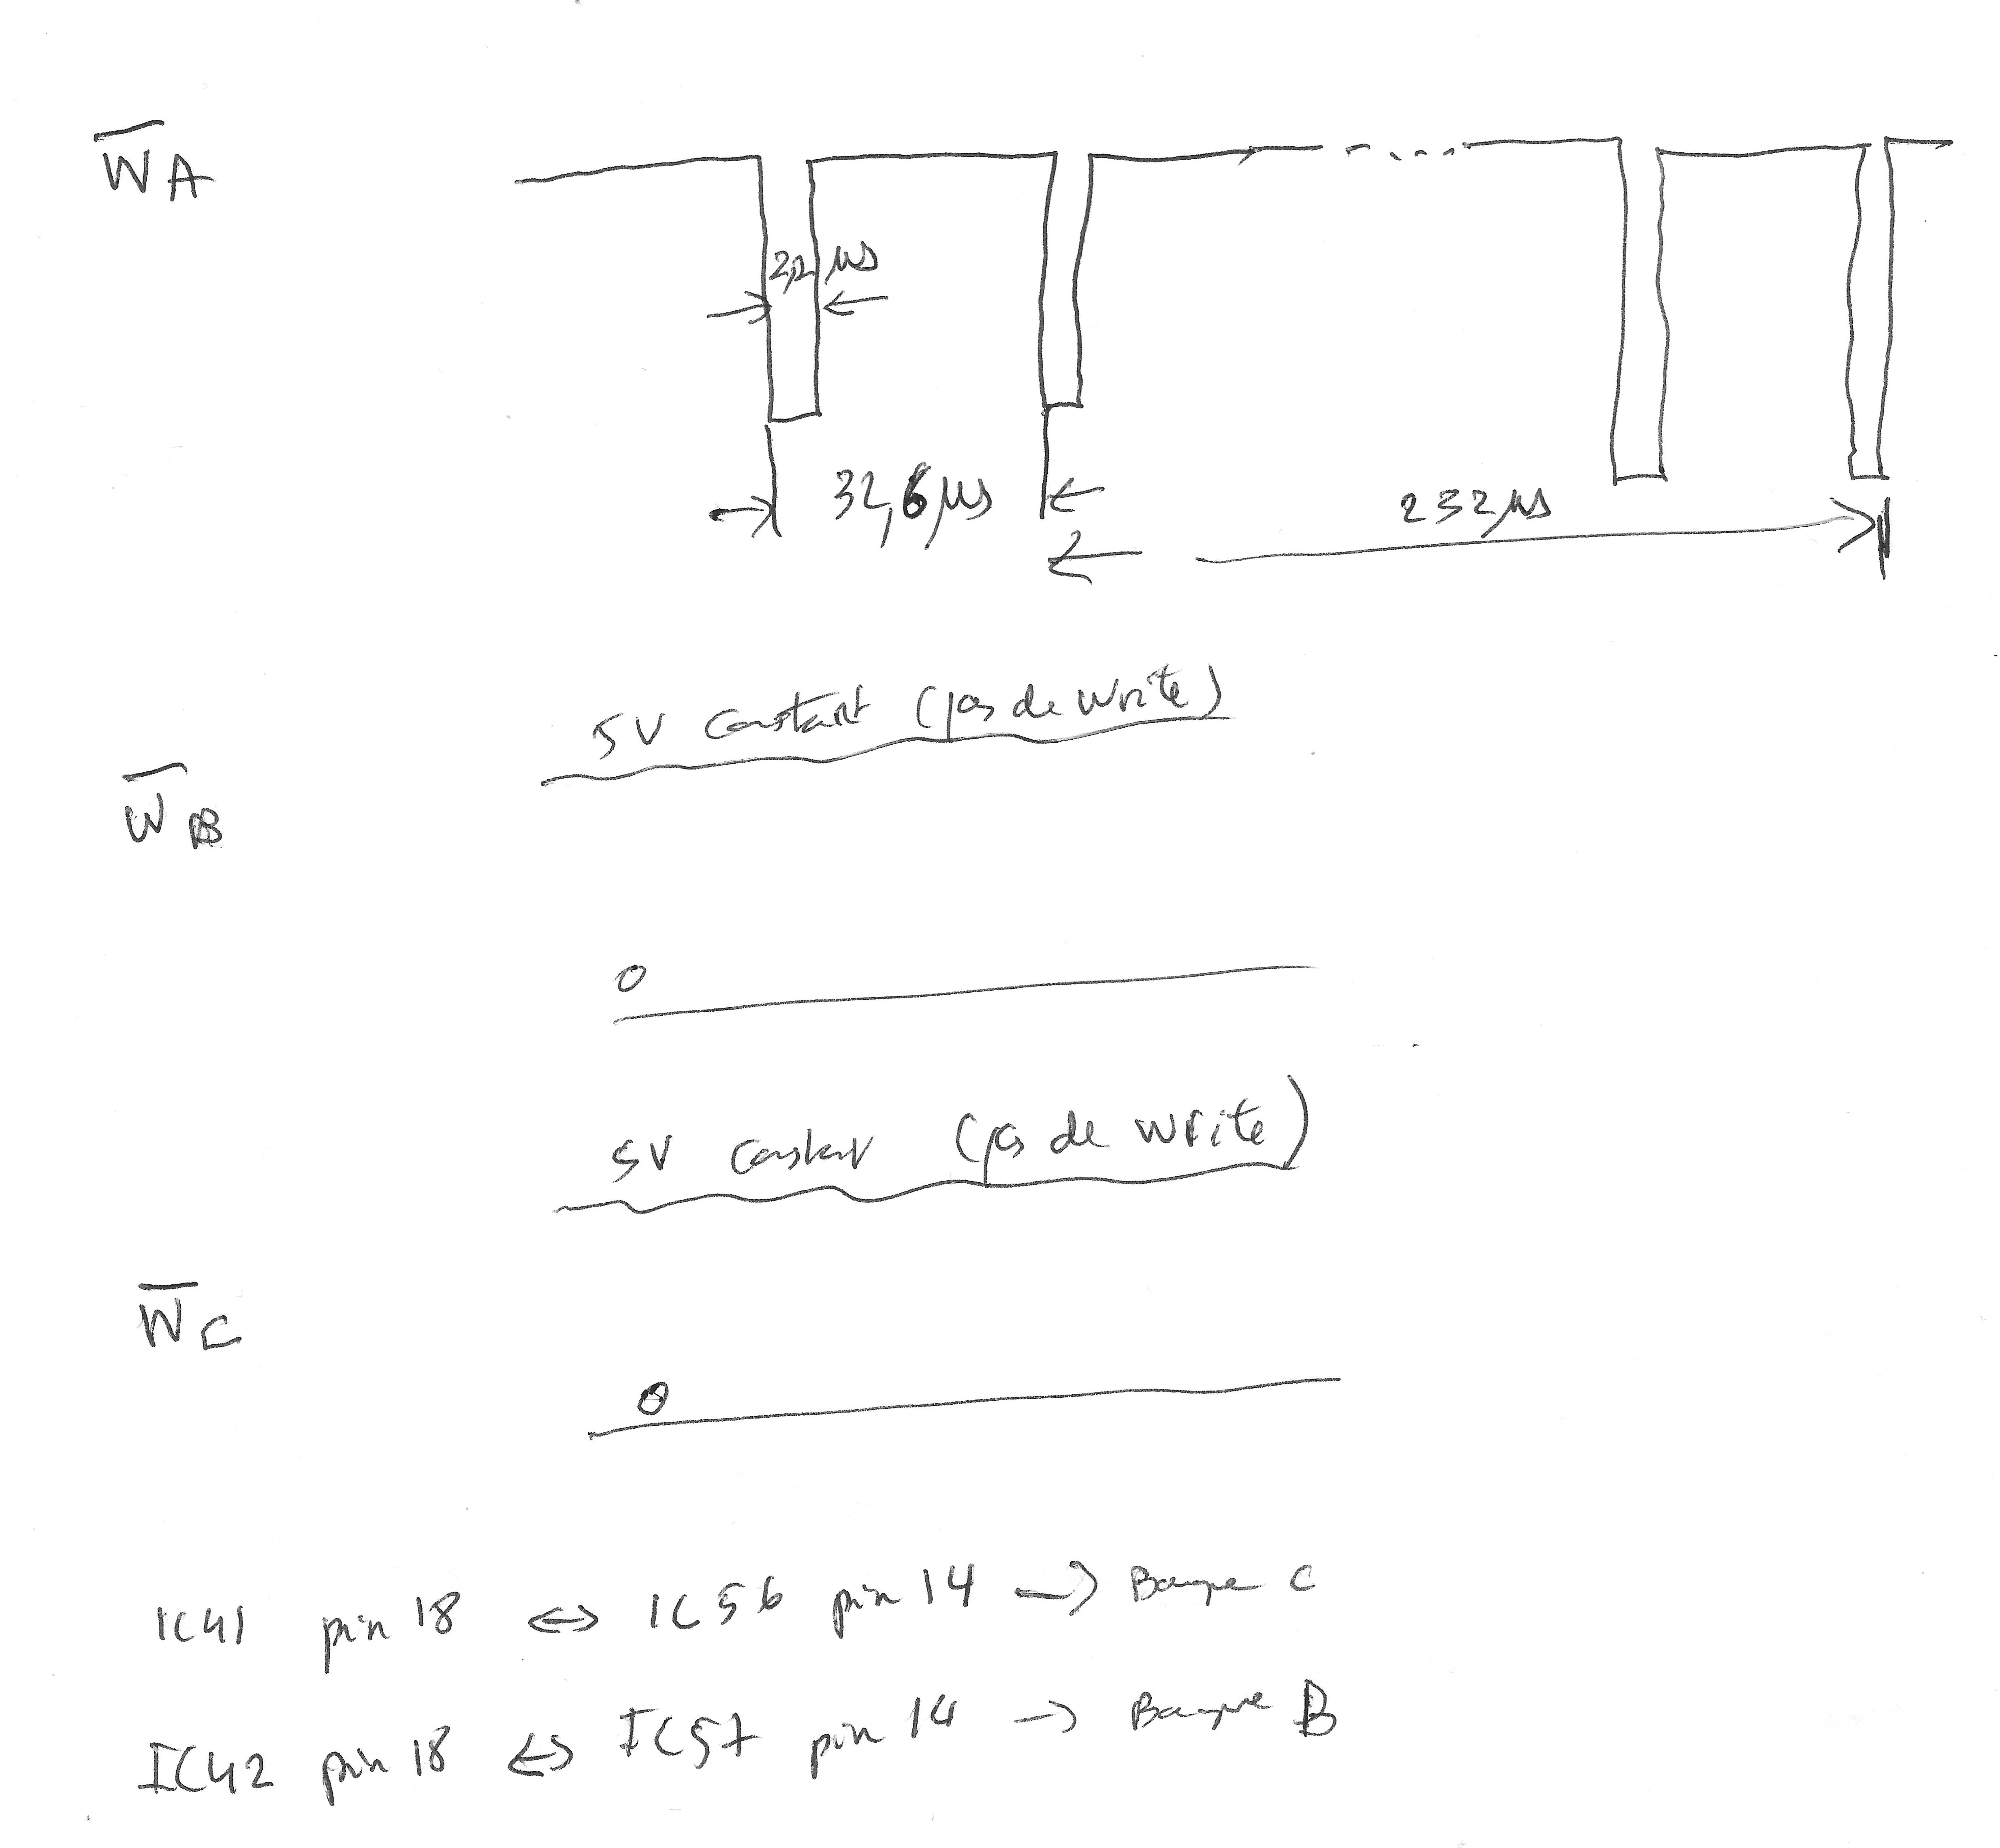 W̅A
2,2 µs
32,6 µs
232 µs
5V constant (pas de write)
W̅B
0
5V constant (pas de write)
W̅C
0
IC41 pin 18 <=> IC56 pin 14 → Banque C
IC42 pin 18 <=> IC57 pin 14 → Banque B